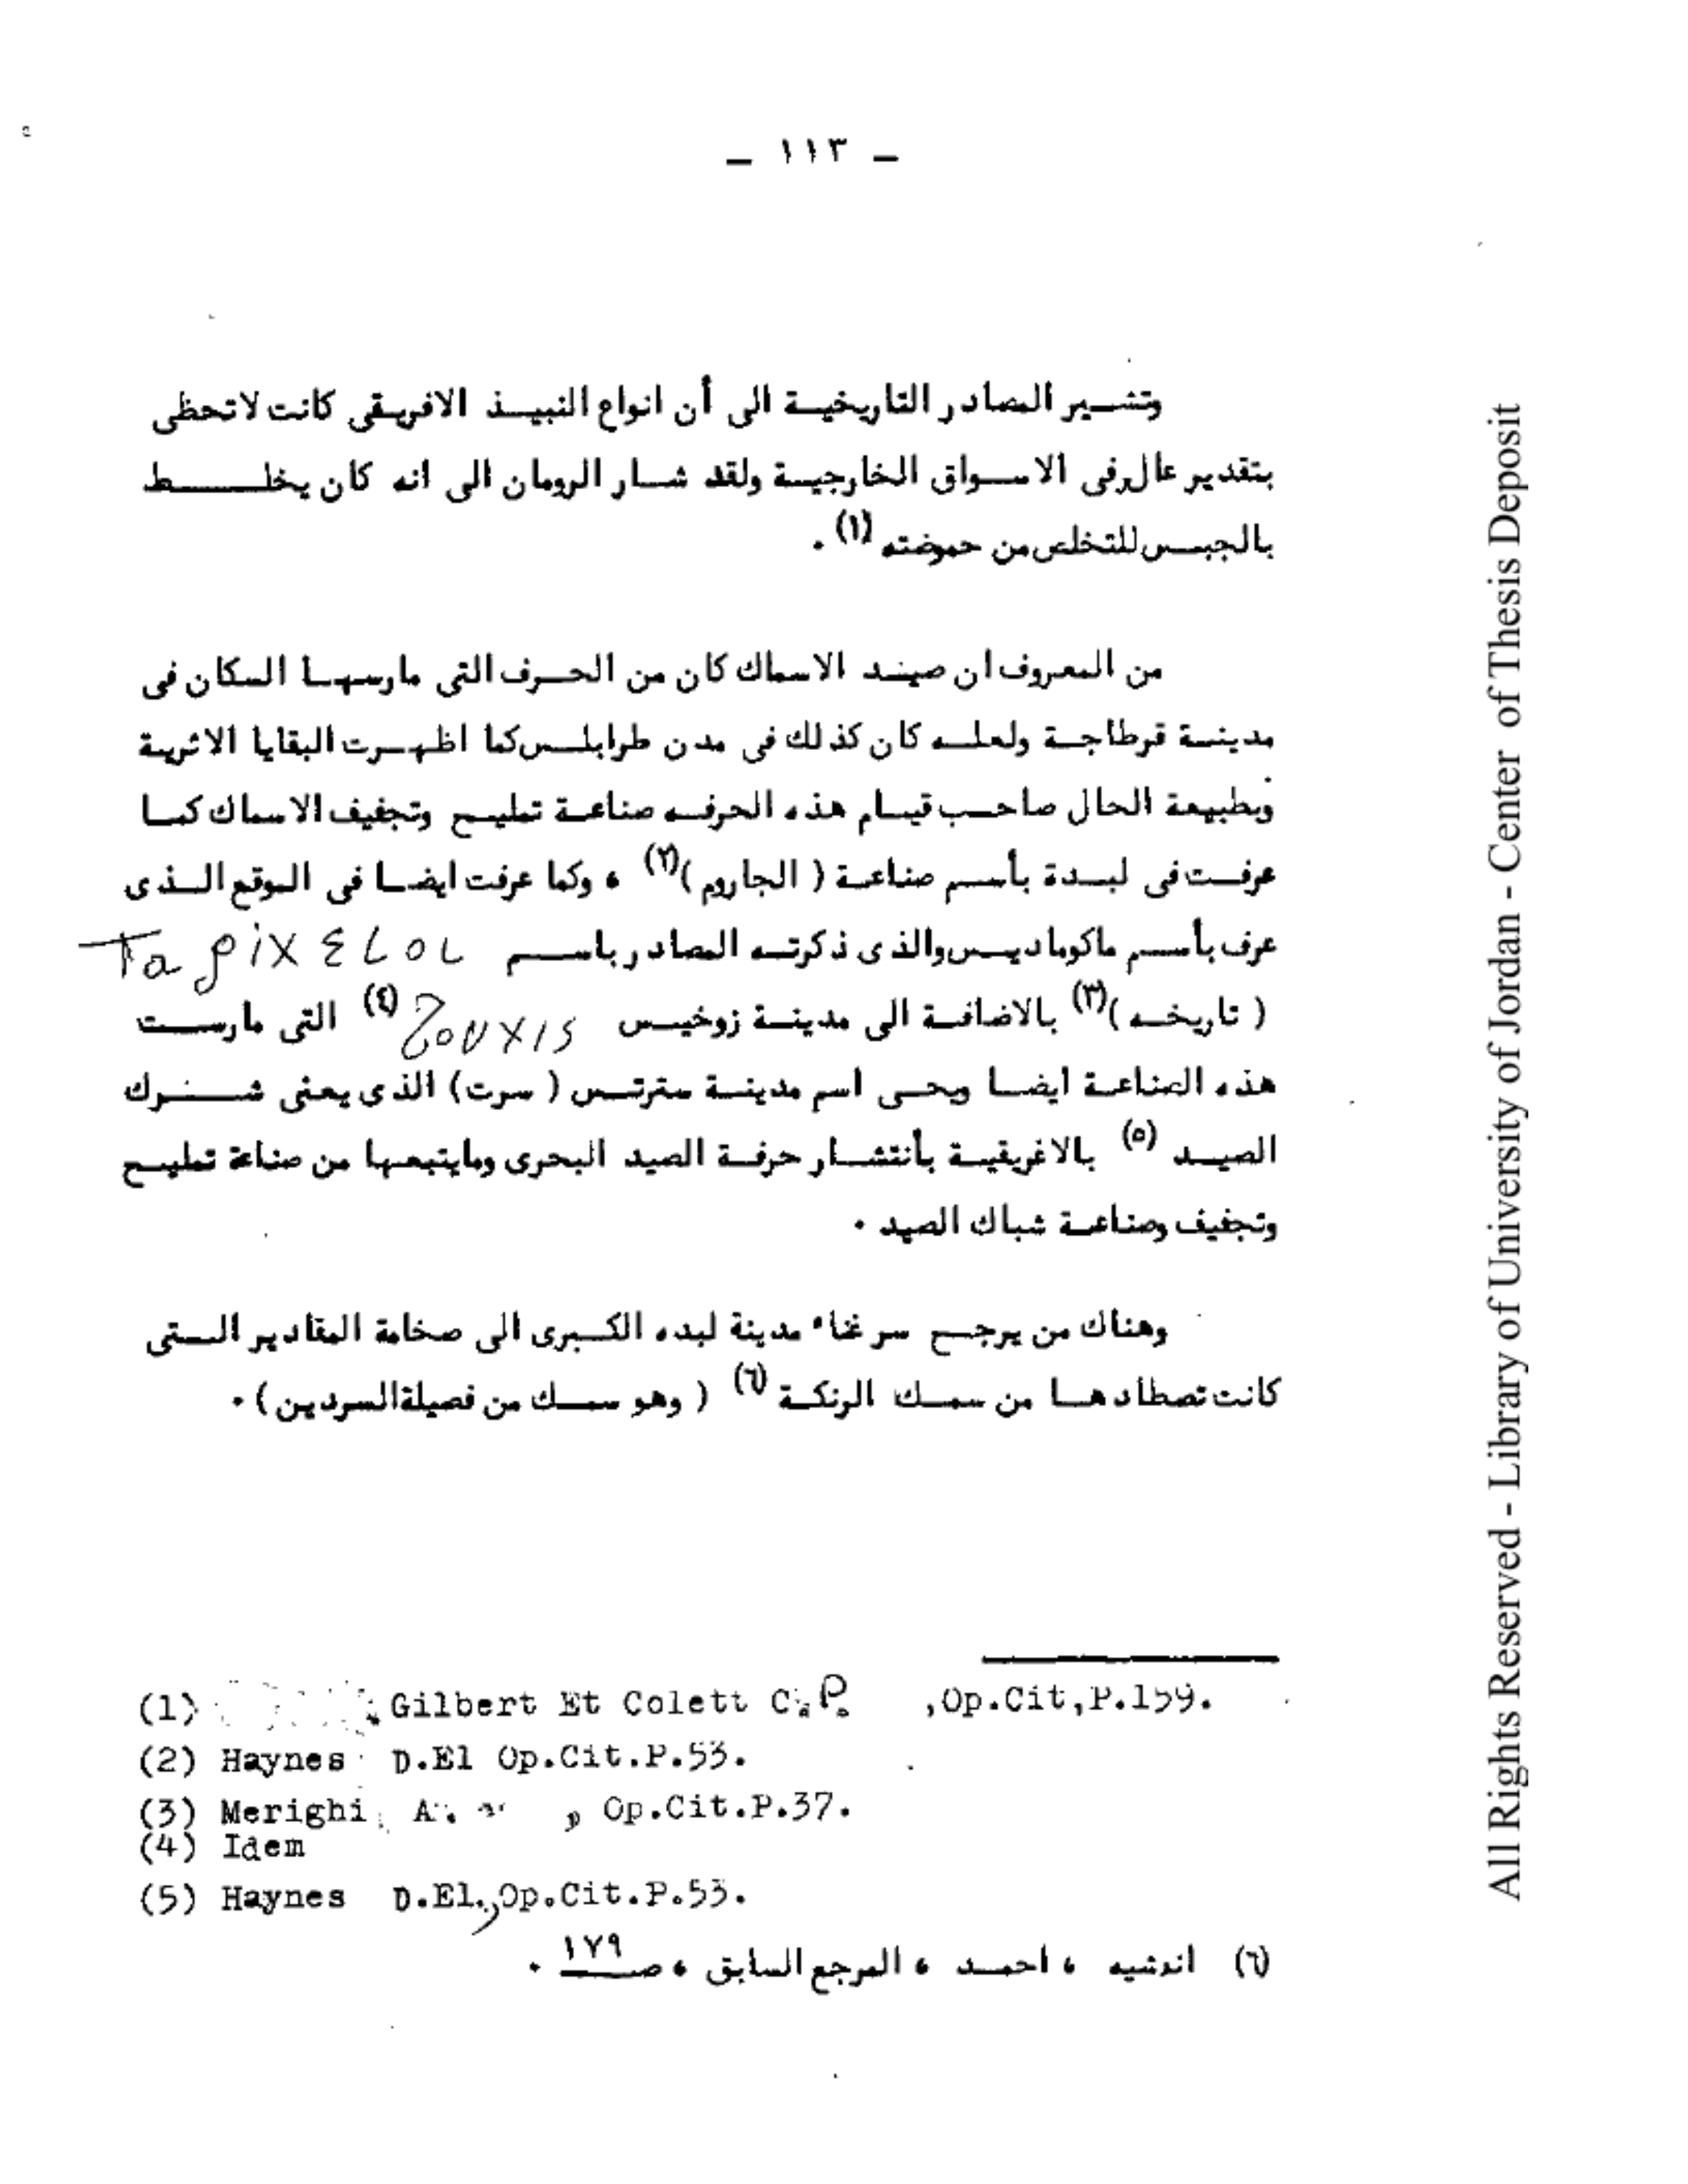 — ١١٣ —
وتشير المصادر التاريخية الى أن انواع النبيذ الافريقى كانت لاتحظى
بتقدير عال فى الاسواق الخارجية ولقد شار الرومان الى انه كان يخلط
بالجبس للتخلص من حموضته (١) .
من المعروف ان صيد الاسماك كان من الحرف التى مارسها السكان فى
مدينة قرطاجة ولعله كان كذلك فى مدن طرابلس كما اظهرت البقايا الاثرية
وبطبيعة الحال صاحب قيام هذه الحرفه صناعة تمليح وتجفيف الاسماك كما
عرفت فى لبدة بأسم صناعة ( الجاروم )(٢) ، وكما عرفت ايضا فى الموقع الذى
عرف بأسم ماكوماديس والذى ذكرته المصادر باسم Ta ρiXεLoL
( تاريخه )(٣) بالاضافة الى مدينة زوخيس Zouxis (٤) التى مارست
هذه الصناعة ايضا ويحى اسم مدينة سترتس ( سرت ) الذى يعنى شرك
الصيد (٥) بالاغريقية بأنتشار حرفة الصيد البحرى ومايتبعها من صناعة تمليح
وتجفيف وصناعة شباك الصيد .
وهناك من يرجع سر غناء مدينة لبده الكبرى الى صخامة المقادير التى
كانت تصطادها من سمك الرنكة (٦) ( وهو سمك من فصيلة السردين ) .
(1) Gilbert Et Colett C.P. ,Op.Cit,P.159.
(2) Haynes D.El Op.Cit.P.53.
(3) Merighi A. , Op.Cit.P.37.
(4) Idem
(5) Haynes D.El.,Op.Cit.P.53.
(٦) اندشيه ، احمد ، المرجع السابق ، صـ ١٧٩ .
All Rights Reserved - Library of University of Jordan - Center of Thesis Deposit